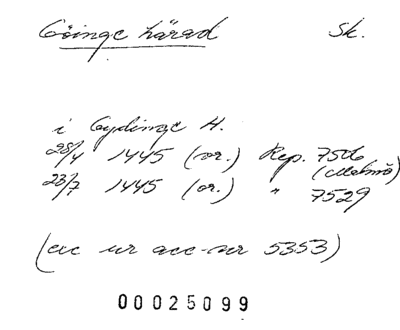 Göinge härad Sk.
i Gydinge H.
28/4 1445 (or.) Rep. 7506
(Malmö)
23/7 1445 (or.) " 7529
(exc ur acc-nr 5353)
00025099